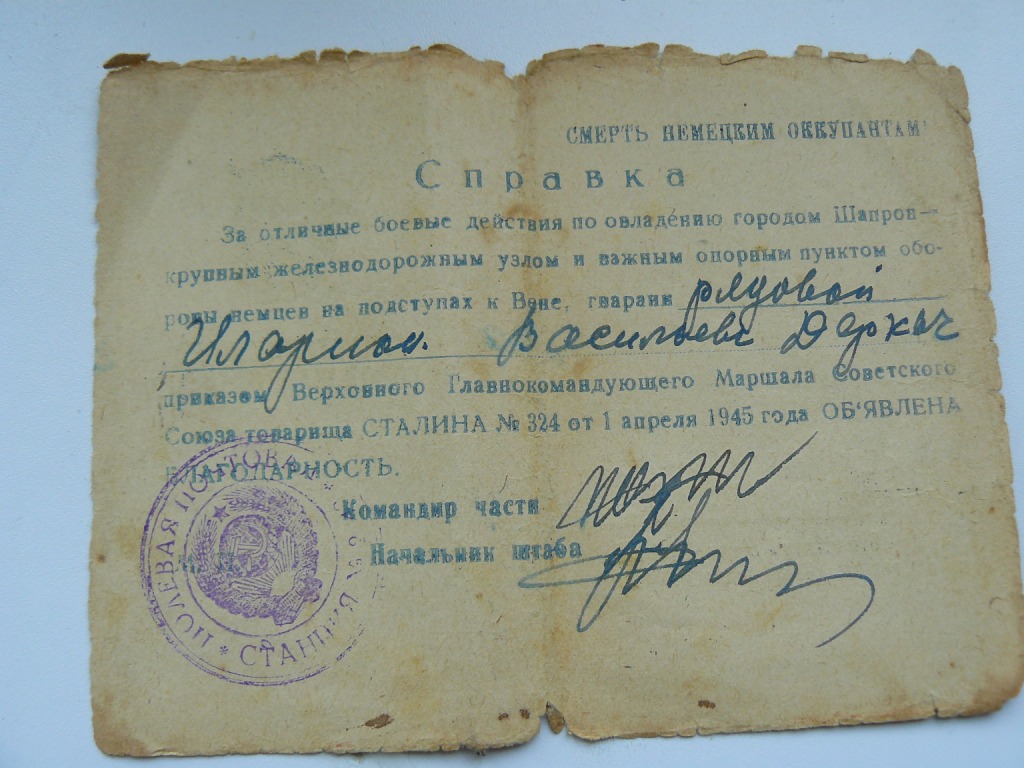 СМЕРТЬ НЕМЕЦКИМ ОККУПАНТАМ!
Справка
За отличные боевые действия по овладению городом Шапрон—
крупным железнодорожным узлом и важным опорным пунктом обо-
роны немцев на подступах к Вене, гвардии рядовой
Иларион Василоевс Деркач
приказом Верховного Главнокомандующего Маршала Советского
Союза товарища СТАЛИНА № 324 от 1 апреля 1945 года ОБ‘ЯВЛЕНА
БЛАГОДАРНОСТЬ.
Командир части
Начальник штаба
ПОЛЕВАЯ ПОЧТОВАЯ * СТАНЦИЯ